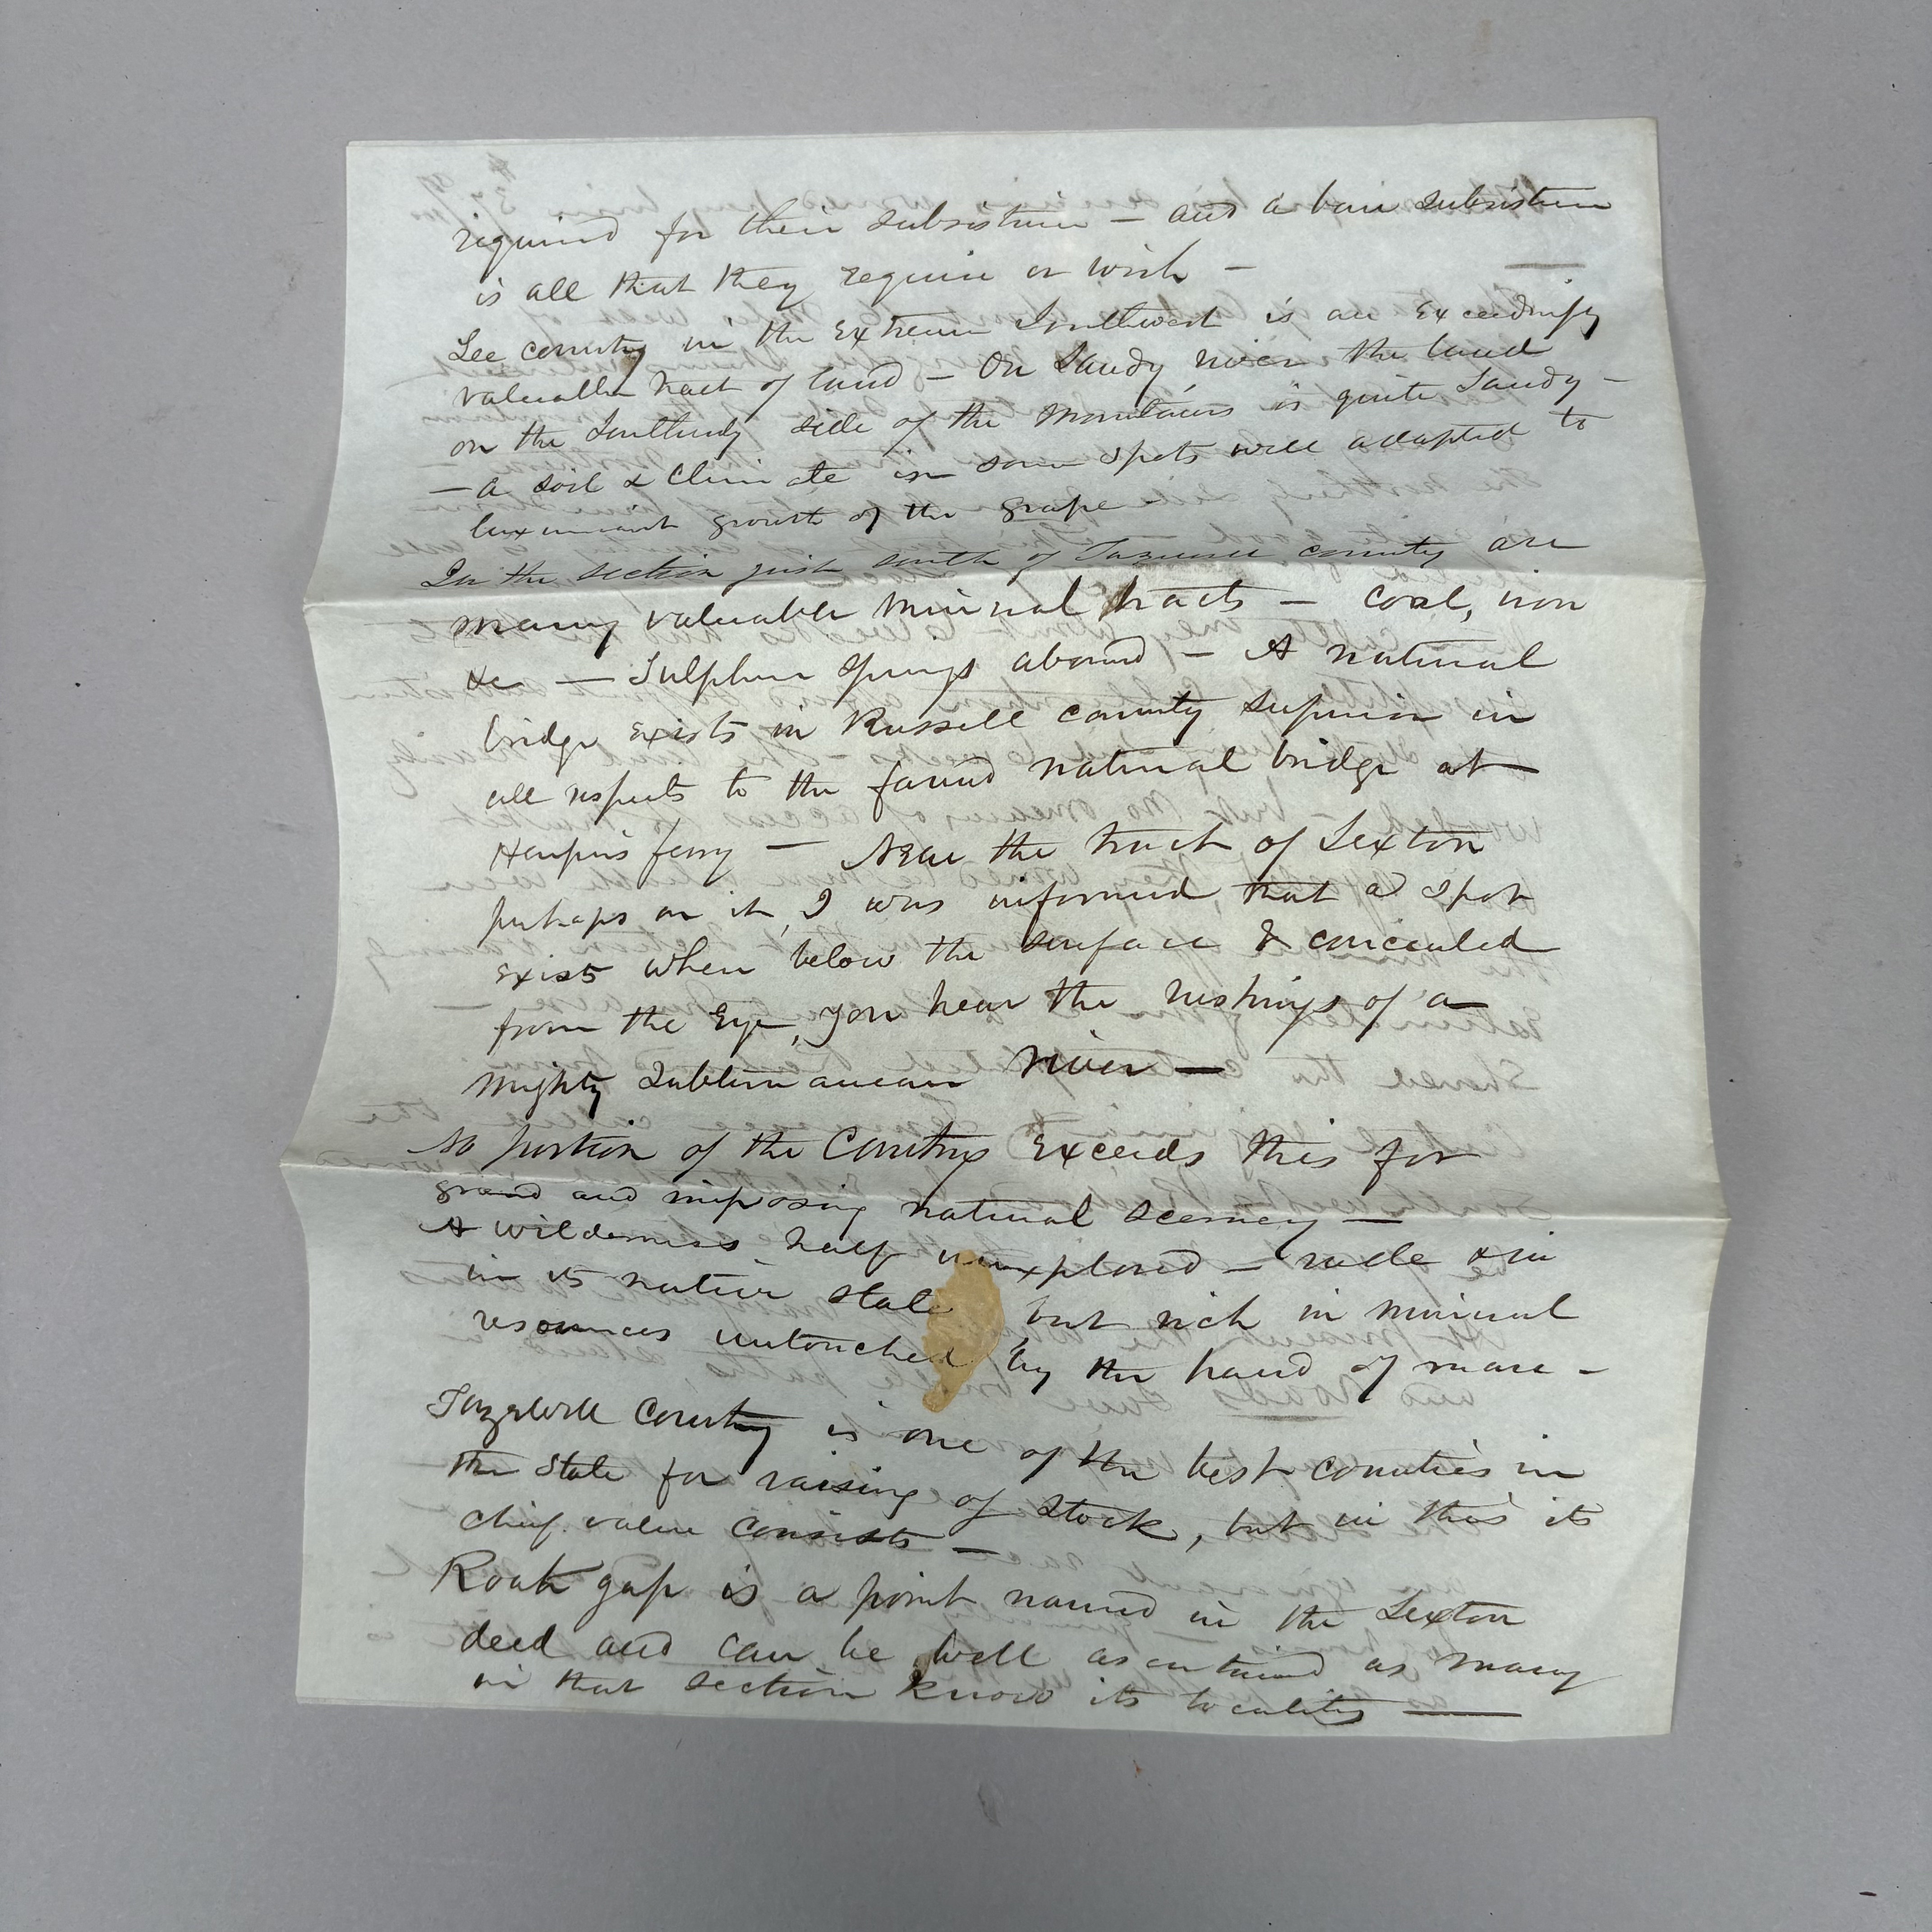 required for their subsistence — and a bare subsistence
is all that they require or wish —
Lee county in the extreme Southwest is an exceedingly
valuable tract of land — On Sandy river the land
on the Southerly side of the mountains is quite Sandy —
— a soil & climate in some spots well adapted to
luxuriant growth of the grape —
In the section just south of Tazewell county are
many valuable mineral tracts — coal, iron
&c — Sulphur springs abound — A natural
bridge exists in Russell county superior in
all respects to the famed natural bridge at
Harpers ferry — Near the tract of Sexton
perhaps on it, I was informed that a spot
exists when below the surface & concealed
from the Eye, you hear the rushings of a
mighty subterranean river —
No portion of the Country Exceeds this for
grand and imposing natural scenery —
A wilderness half unexplored — rude &
in its native state, but rich in mineral
resources untouched by the hand of man —
Tazewell County is one of the best counties in
the State for raising of Stock, but in this its
chief value consists —
Roark gap is a point named in the Sexton
deed and can be well ascertained as many
in that section know its locality —